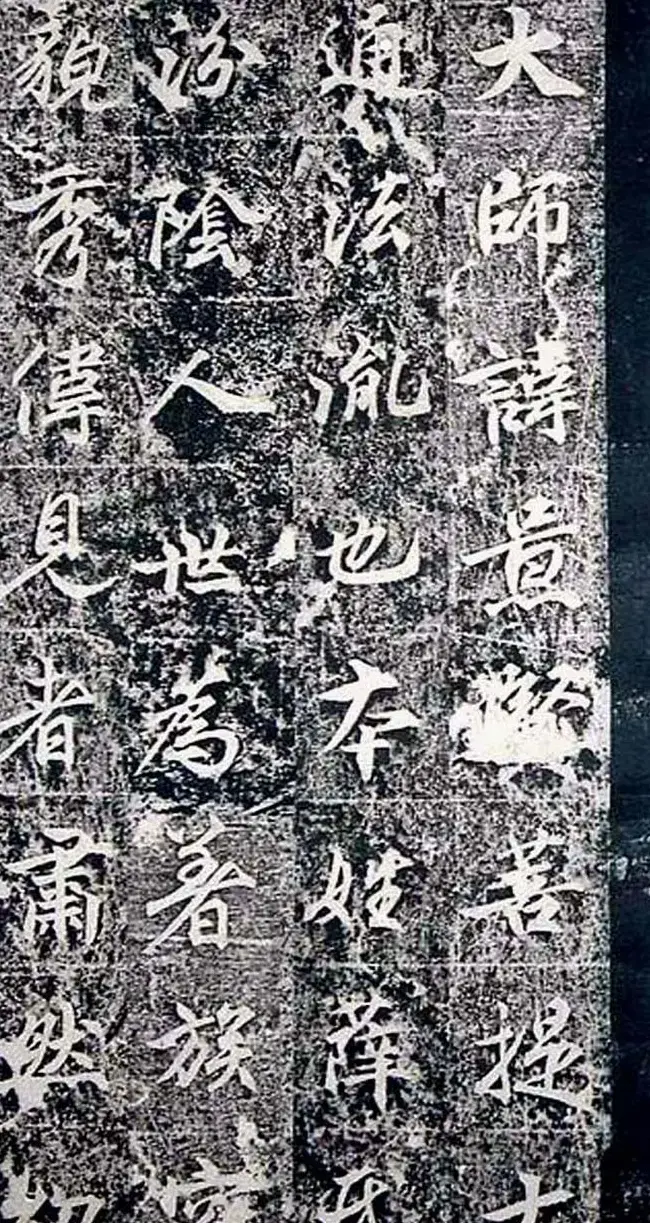 大師諱景菩提
通法胤也本姓薛
汾陰人世為著族
貌秀偉見者肅然